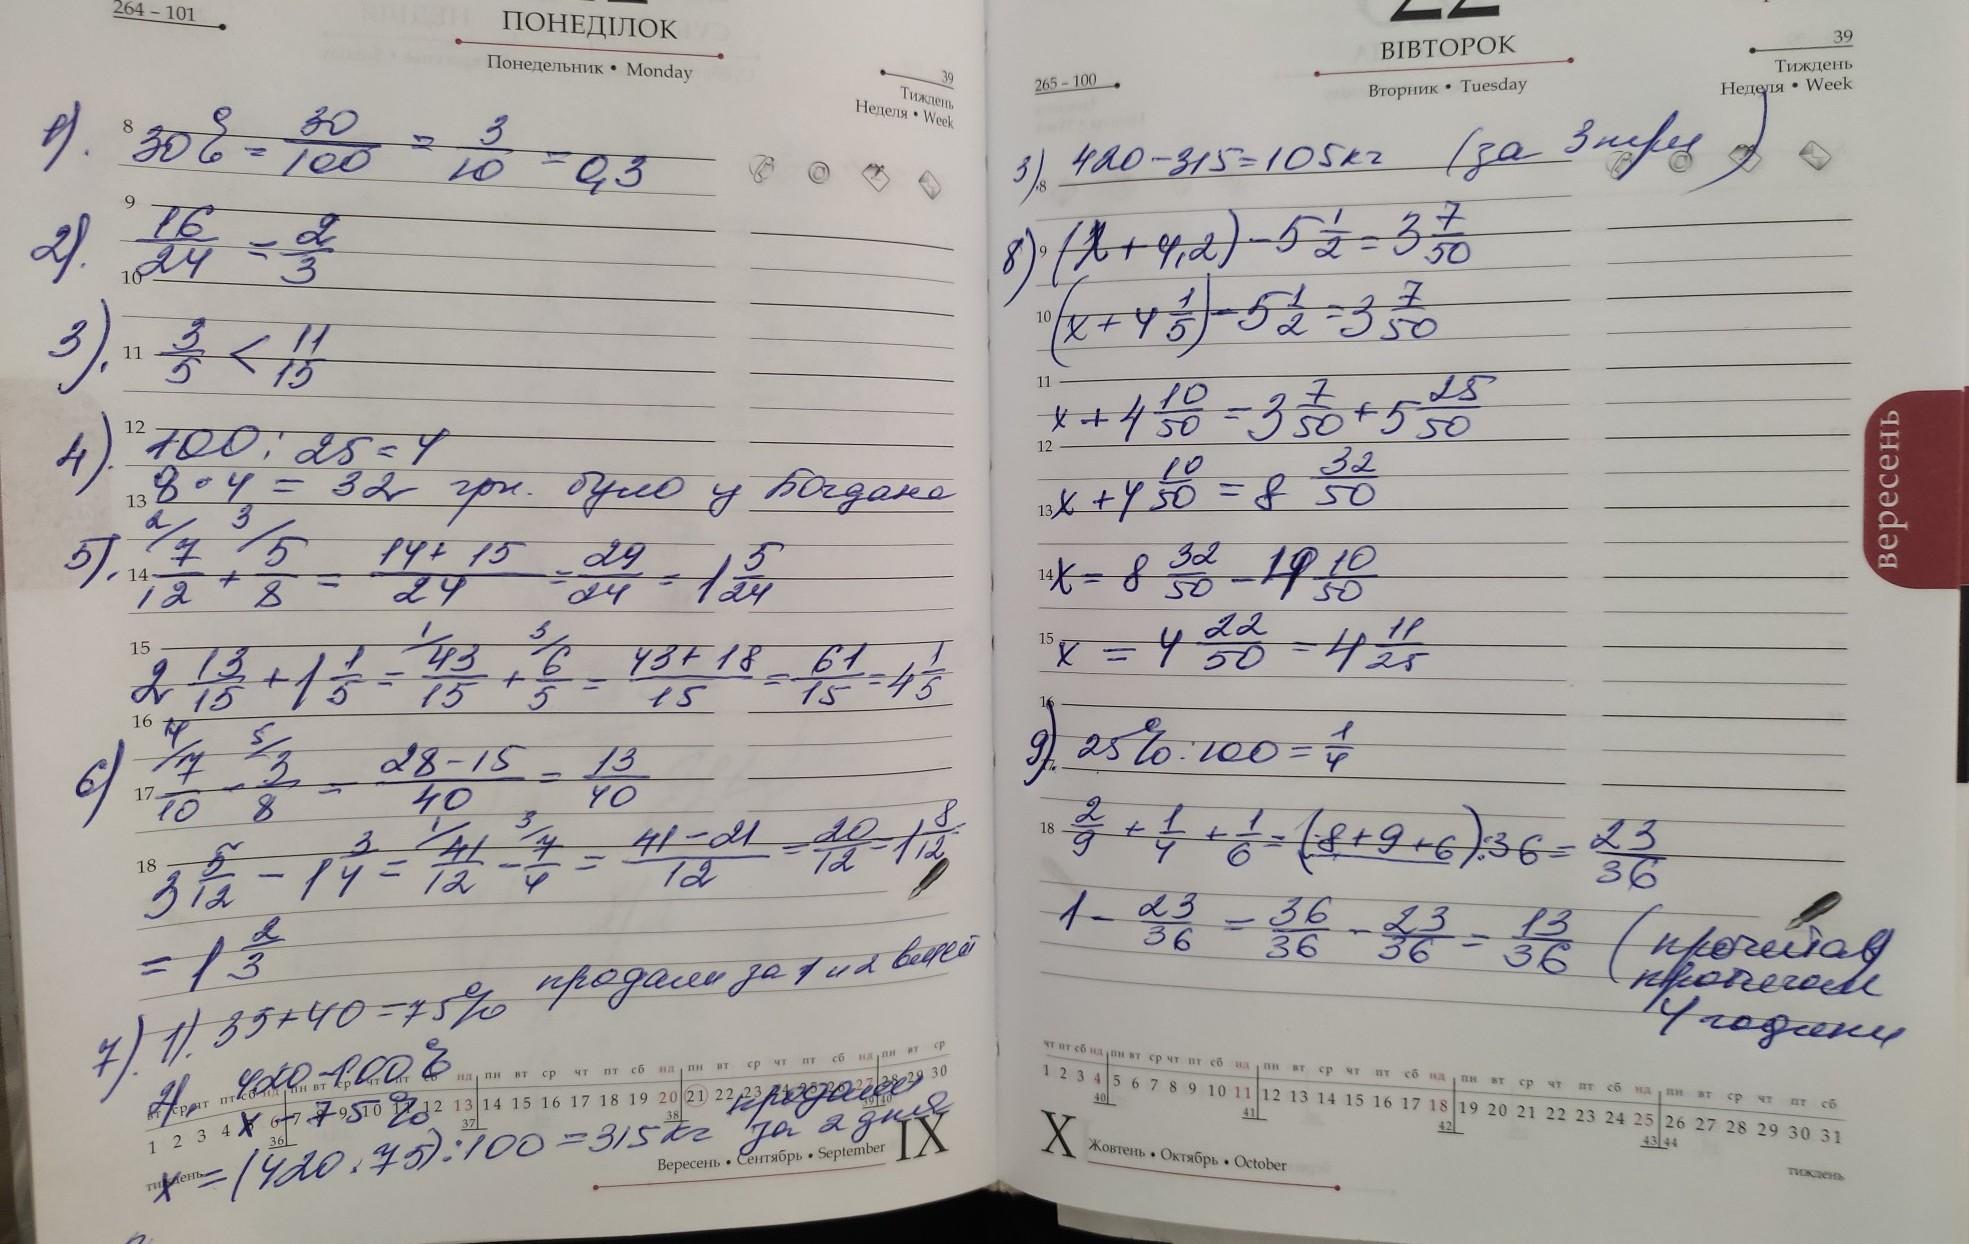 264 – 101
ПОНЕДІЛОК
Понедельник • Monday
39
Тиждень
Неделя • Week
1). 30% = 30/100 = 3/10 = 0,3
2). 16/24 = 2/3
3). 3/5 < 11/15
4). 100 : 25 = 4
8 • 4 = 32 грн. було у Богдана
5). 7/12 + 5/8 = (14 + 15)/24 = 29/24 = 1 5/24
2 13/15 + 1 1/5 = 43/15 + 6/5 = (43 + 18)/15 = 61/15 = 4 1/5
6) 7/10 - 3/8 = (28 - 15)/40 = 13/40
3 5/12 - 1 3/4 = 41/12 - 7/4 = (41 - 21)/12 = 20/12 = 1 8/12 =
= 1 2/3
7) 1). 35 + 40 = 75% продали за 1 и 2
2). 420 - 100%
x - 75% продано
x = (420 . 75) : 100 = 315 кг за 2 дня
8
9
10
11
12
13
14
15
16
17
18
вт ср чт пт сб нд пн вт ср чт пт сб нд пн вт ср чт пт сб нд пн вт ср чт пт сб нд пн вт ср
1 2 3 4 5 6 7 8 9 10 11 12 13 14 15 16 17 18 19 20 21 22 23 24 25 26 27 28 29 30
36 37 38 39 40
тиждень
Вересень • Сентябрь • September
IX
22
ВІВТОРОК
Вторник • Tuesday
265 – 100
39
Тиждень
Неделя • Week
3) 420 - 315 = 105 кг (за 3 )
8) (x + 4,2) - 5 1/2 = 3 7/50
(x + 4 1/5) - 5 1/2 = 3 7/50
x + 4 10/50 = 3 7/50 + 5 25/50
x + 4 10/50 = 8 32/50
x = 8 32/50 - 4 10/50
x = 4 22/50 = 4 11/25
9) 25% : 100 = 1/4
2/9 + 1/4 + 1/6 = (8 + 9 + 6) : 36 = 23/36
1 - 23/36 = 36/36 - 23/36 = 13/36 (прочитав
протягом
4 години
8
9
10
11
12
13
14
15
16
17
18
вересень
чт пт сб нд пн вт ср чт пт сб нд пн вт ср чт пт сб нд пн вт ср чт пт сб нд пн вт ср чт пт сб
1 2 3 4 5 6 7 8 9 10 11 12 13 14 15 16 17 18 19 20 21 22 23 24 25 26 27 28 29 30 31
40 41 42 43 44
X
Жовтень • Октябрь • October
тиждень